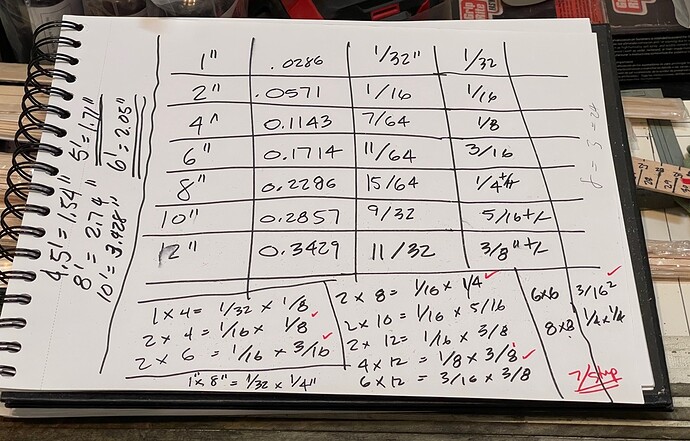 1" .0286 1/32" 1/32
2" .0571 1/16 1/16
4" 0.1143 7/64 1/8
6" 0.1714 11/64 3/16
8" 0.2286 15/64 1/4 +/-
10" 0.2857 9/32 5/16 +/-
12" 0.3429 11/32 3/8" +/-
4.5' = 1.54"
5' = 1.71"
6' = 2.05"
8' = 2.74"
10' = 3.428"
1 x 4 = 1/32 x 1/8
2 x 4 = 1/16 x 1/8
2 x 6 = 1/16 x 3/16
1" x 8" = 1/32 x 1/4"
2 x 8 = 1/16 x 1/4
2 x 10 = 1/16 x 5/16
2 x 12 = 1/16 x 3/8
4 x 12 = 1/8 x 3/8
6 x 12 = 3/16 x 3/8
6x6 3/16²
8x8 1/4 x 1/4
Grip
Rite